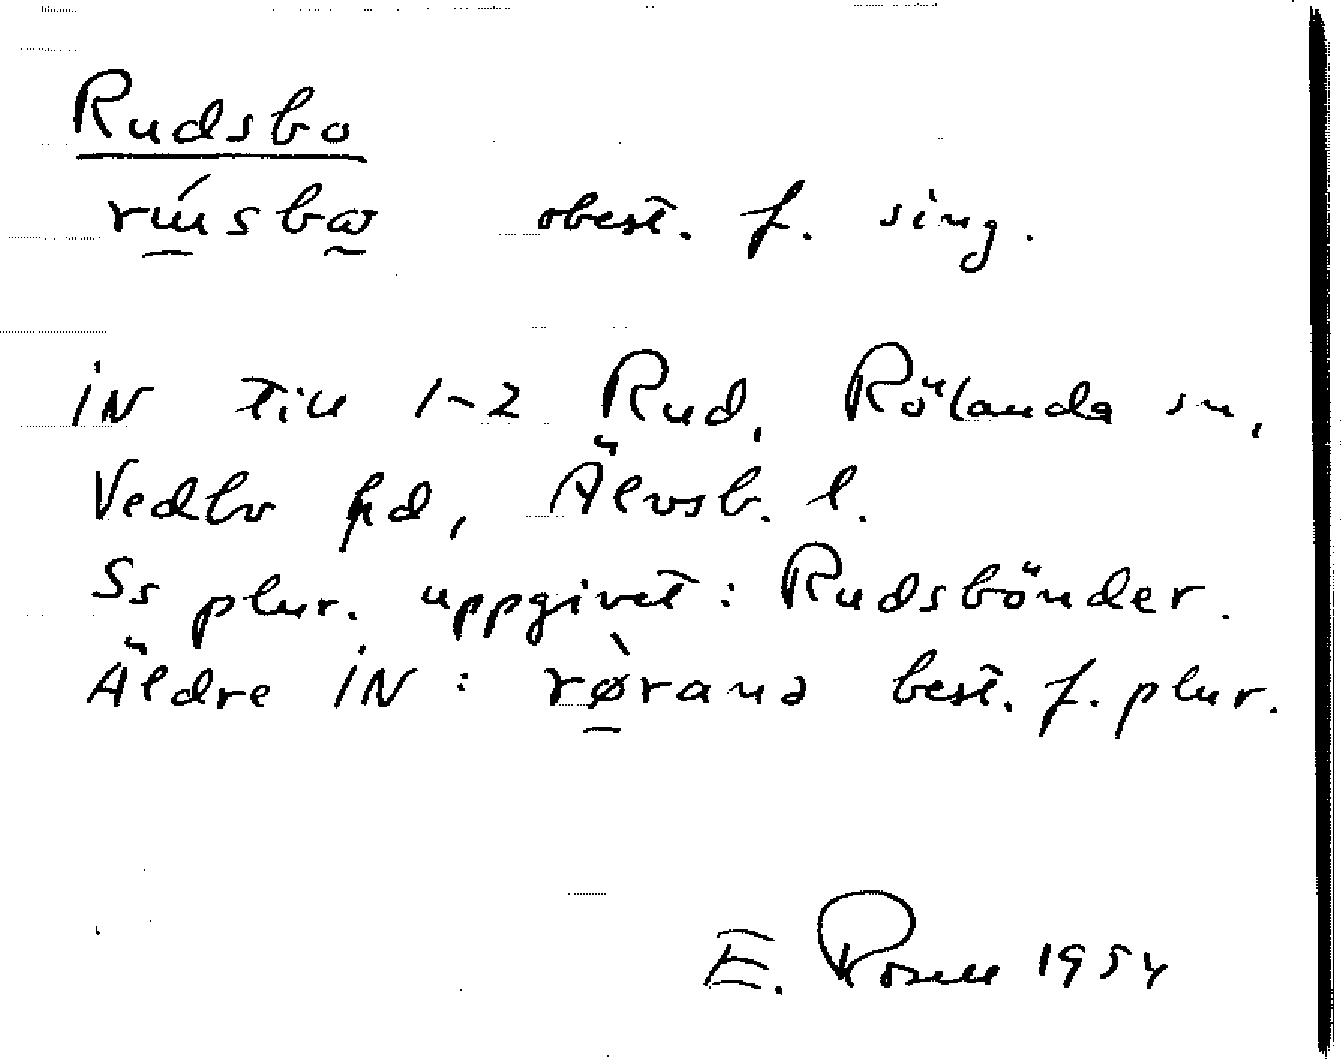 Rudsbo
rúsbω obest. f. sing.
iN till 1-2 Rud, Rölanda sn,
Vedbo hd, Älvsb. l.
Ss plur. uppgivet: Rudsbönder.
Äldre iN: rø̀rana best. f. plur.
E. Rosell 1954